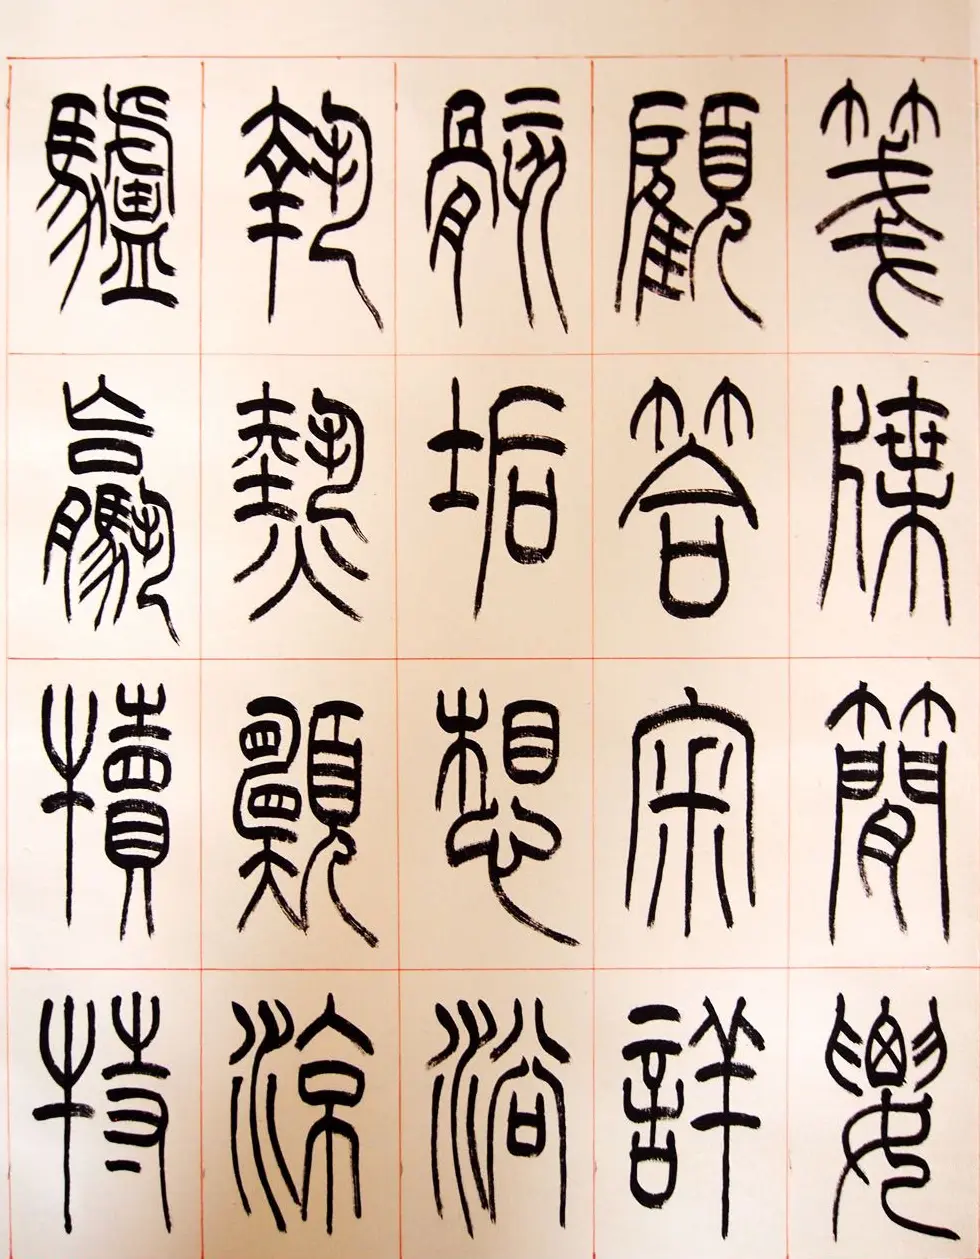 箋牒簡要
顧答審詳
骸垢想浴
執熱願涼
驢驘犢特